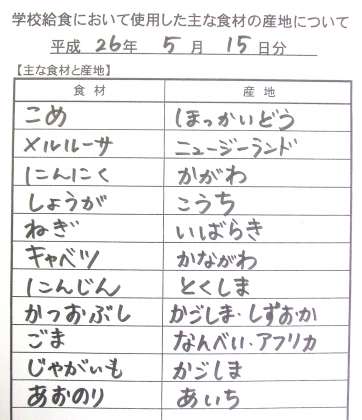 学校給食において使用した主な食材の産地について
平成 26年 5月 15日分
【主な食材と産地】
食材 産地
こめ ほっかいどう
メルルーサ ニュージーランド
にんにく かがわ
しょうが こうち
ねぎ いばらき
キャベツ かながわ
にんじん とくしま
かつおぶし かごしま・しずおか
ごま なんべい・アフリカ
じゃがいも かごしま
あおのり あいち